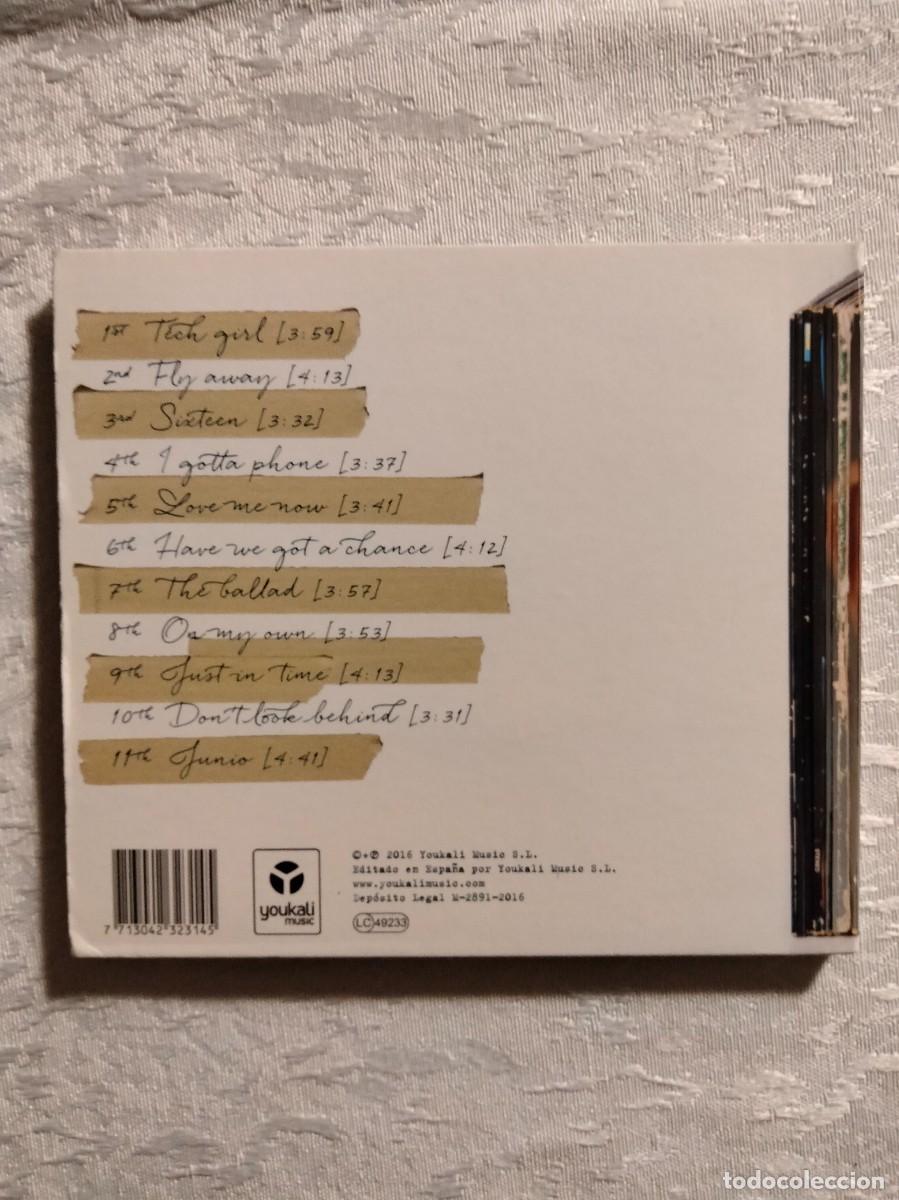 1st Tech girl [3:59]
2nd Fly away [4:13]
3rd Sixteen [3:32]
4th I gotta phone [3:37]
5th Love me now [3:41]
6th Have we got a chance [4:12]
7th The ballad [3:57]
8th On my own [3:53]
9th Just in time [4:13]
10th Don't look behind [3:31]
11th Junio [4:41]
7 713042 323145
youkali
music
©+℗ 2016 Youkali Music S.L.
Editado en España por Youkali Music S.L.
www.youkalimusic.com
Depósito Legal M-2891-2016
LC 49233
todocoleccion